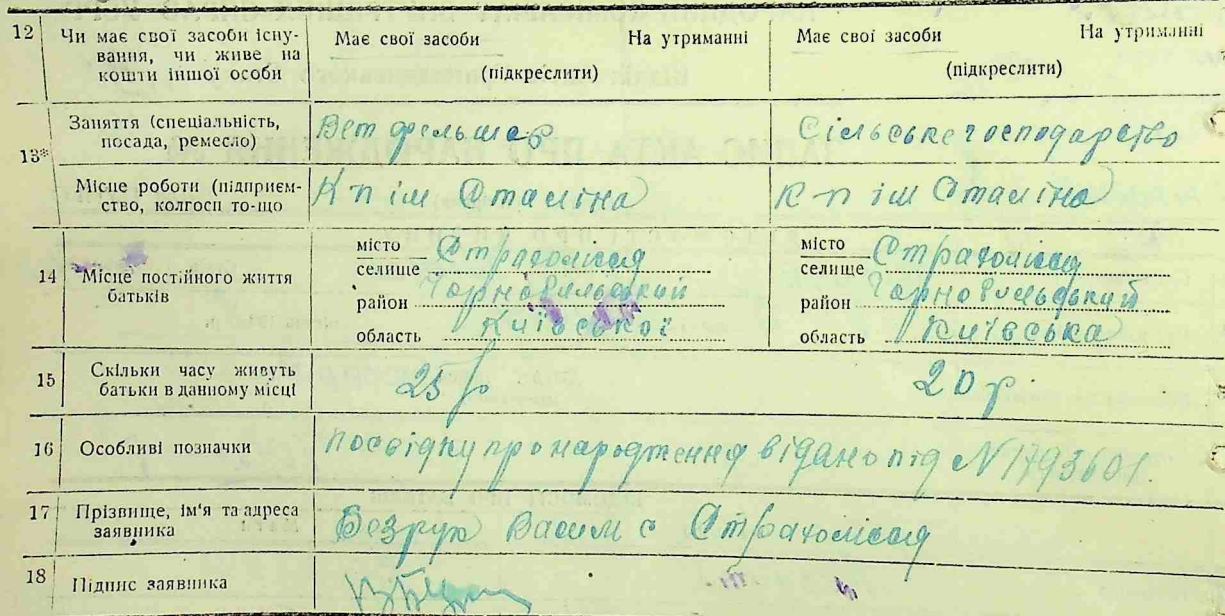 12 Чи має свої засоби існування, чи живе на кошти іншої особи Має свої засоби На утриманні (підкреслити) Має свої засоби На утриманні (підкреслити)
13* Заняття (спеціальність, посада, ремесло) Вет фельшер Сільське господарство
Місце роботи (підприємство, колгосп то-що К п ім Сталіна К-п ім Сталіна
14 Місце постійного життя батьків
місто селище Страхолісся місто селище Страхолісся
район Чорнобильський район Чорнобильський
область Київської область Київська
15 Скільки часу живуть батьки в данному місці 25 р 20 р.
16 Особливі позначки посвідку про народження відано під № 1793601.
17 Прізвище, ім'я та адреса заявника Безрук Васил с Страхолісся
18 Підпис заявника